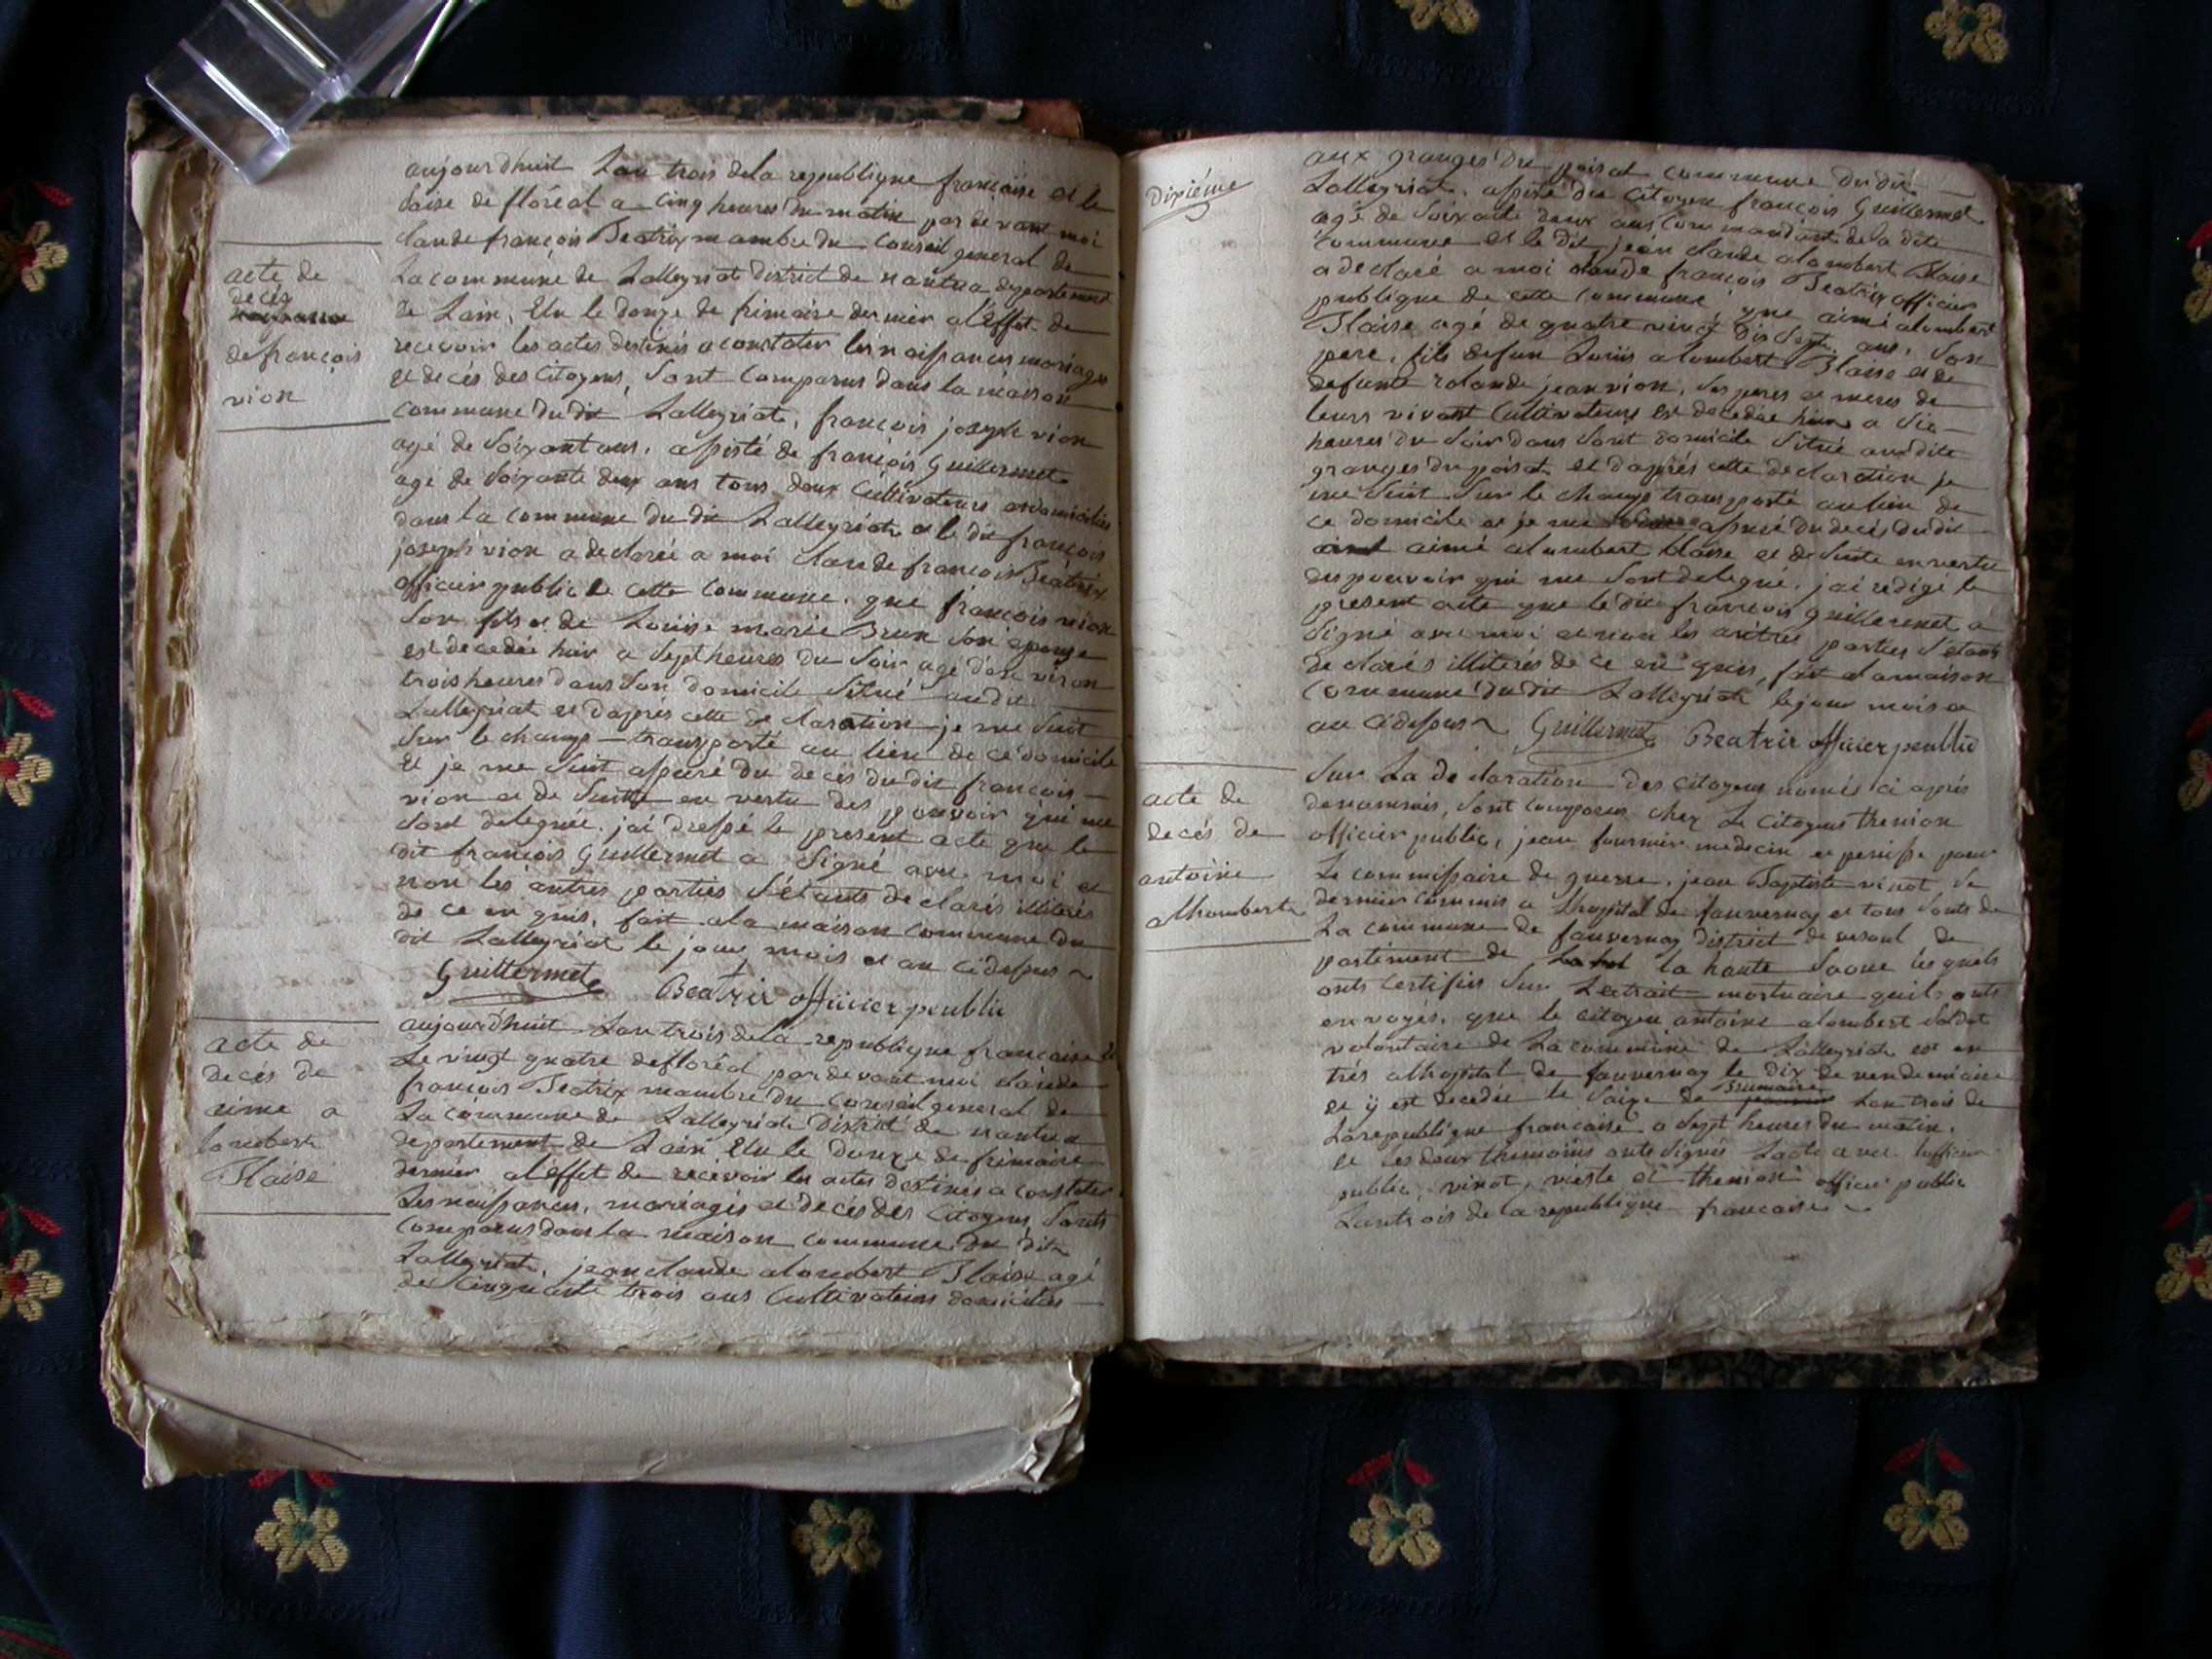 aujourdhuit Lan trois dela republique francaise et le
saise de floréal a cinq heures du matin par devant moi
claude françois Beatrix mambre du conseil general de
La commune de Lalleyriat district de nantua departement
de Lain, Elu le douze de frimaire dernier al'Effet de
recevoir les actes destinés a constater les naissances mariages
et decès des citoyens, sont comparus dans la maison
commune du dit Lalleyriat, francois joseph vion
agé de soixant ans, assisté de françois Guillermet
agé de soixante deux ans tous deux cultivateurs
dans la commune du dit Lalleyriat et le dit françois
joseph vion a declarée a moi claude francois Beatrix
officier public de cette commune, que françois vion
son fils et de Louise marie Brun son epouse
est decedée hier a sept heures du soir agé d'en viron
trois heures dans son domicile situé au dit
Lalleyriat et daprés cette declaration je me suit
sur le champ transporté au lieu de ce domicile
et je me suit assuré du decés du dit francois
vion et de suitte en vertu des pouvoir qui me
sont deleguée, jai dressé le present acte que le
dit francois Guillermet a signé avec moi et
non les autres parties s'étants declarés illiterés
de ce en quis, fait ala maison commune du
dit Lalleyriat le jour mois et an cidessus
Guillermet Beatrix officier peublic
acte de
decés
de françois
vion
aujourdhuit Lan trois dela republique francaise et
Le vingt quatre defloréal par devant moi claude
francois Beatrix mambre du conseil general de
La commune de Lalleyriat District de nantua
departement de Lain Elu le douze de frimaire
dernier al'effet de recevoir les actes destinés a constater
Les naissances, mariages et decés des citoyens, sonts
comparus dans la maison commune du dit
Lalleyriat, jean claude alombert Blaise agé
de cinquante trois ans cultivateurs domiciliés
acte de
deces de
aime a
lombert
Blaise
Dixiéme
aux granges du poisat commune du dit
Lalleyriat, assisté du citoyen françois Guillermet
agé de soixante deux ans commandant de la dite
commune et le dit jean claude alombert Blaise
a declaré a moi claude françois Beatrix officier
publique de cette commune que aimé alombert
Blaise agé de quatre vingt dis sept ans, son
pere, fils defun Louis alombert Blaise et de
defunte rolande jeanvion, ses peres et meres de
leurs vivant cultivateurs est decedée hier a six
heures du soir dans sont domicile situé audite
granges du poisat et daprés cette declaration je
me suit sur le champ transporté au lieu de
ce domicile et je me assuré du decés du dit
aimé alombert blaise et de suite en vertu
des pouvoir qui me sont delegué, jai redigé le
present acte que le dit francois guillermet a
signé avec moi et non les autres parties s'etant
declarés illiterés de ce en quis, fait ala maison
commune du dit Lalleyriat le jour mois et
an cidessus Guillermet Beatrix officier peublic
Sur La declaration des citoyens només ci aprés
denommés, sont comparus chez Le citoyens thenion
officier public, jean fournier medecin
Le commissaire de guerre, jean Baptiste vinot
dernier commis a Lhopital de fauverney et tous sonts de
La commune de fauverney district de vesoul de
partement de la haute saone lesquels
onts certifies sur Lextrait mortuaire quils onts
envoyés, que le citoyen antoine alombert soldat
volontaire de La commune de Lalleyriat est en
trés alhopital de fauverney le dix de vendemiaire
et ÿ est decedée le saize de Brumaire Lan trois de
Larepublique francaise a sept heures du matin,
et les deux themoins onts signés Lacte avec lofficier
public, vinot, et thenion officier public
Lantrois de la republique francaise
acte de
decés de
antoine
alhombert